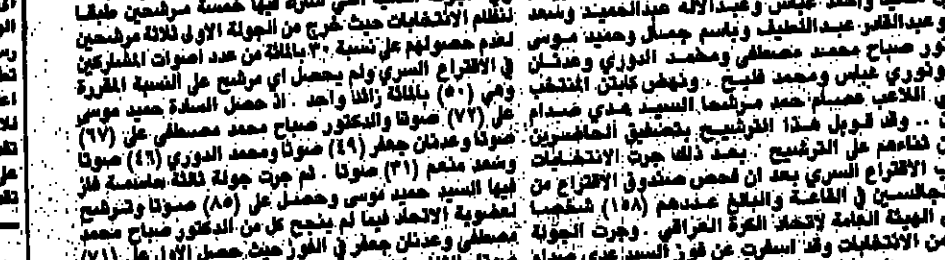 وعبدالاله عبدالحميد وسعد
وعبدالقادر عبداللطيف وباسم جمال وحميد موسى
صباح محمد مصطفى ومحمد الدوري وعدنان
ونوري عباس ومحمد فليح . ونهض كابتن المنتخب
اللاعب عصام حمد مرشحا السيد عدي صدام
.. وقد قوبل هذا الترشيح بتصفيق الحاضرين
ثناءهم على الترشيح . بعد ذلك جرت الانتخابات
الاقتراع السري بعد ان فحص صندوق الاقتراع من
الجالسين في القاعة والبالغ عددهم (١٥٨) شخصا
الهيئة العامة لاتحاد الكرة العراقي . وجرت الجولة
من الانتخابات وقد اسفرت عن فوز السيد عدي صدام
فيها خمسة مرشحين طبقا
لنظام الانتخابات حيث خرج من الجولة الاولى ثلاثة مرشحين
لعدم حصولهم على نسبة ٣٠ بالمائة من عدد اصوات المشاركين
في الاقتراع السري ولم يحصل اي مرشح على النسبة المقررة
وهي (٥٠) بالمائة زائدا واحد . اذ حصل السادة حميد موسى
على (٧٢) صوتا والدكتور صباح محمد مصطفى على (٦٧)
صوتا وعدنان جعفر (٤٩) صوتا ومحمد الدوري (٤٦) صوتا
وسعد منعم (٣١) صوتا . ثم جرت جولة ثالثة حاسمة فاز
فيها السيد حميد موسى وحصل على (٨٥) صوتا وترشح
لعضوية الاتحاد فيما لم ينجح كل من الدكتور صباح محمد
مصطفى وعدنان جعفر في الفوز حيث حصل الاول على (٧١)